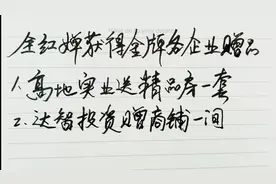 全红婵获得金牌各企业赠品
1、高地实业送精品房一套
2、达智投资赠商铺一间